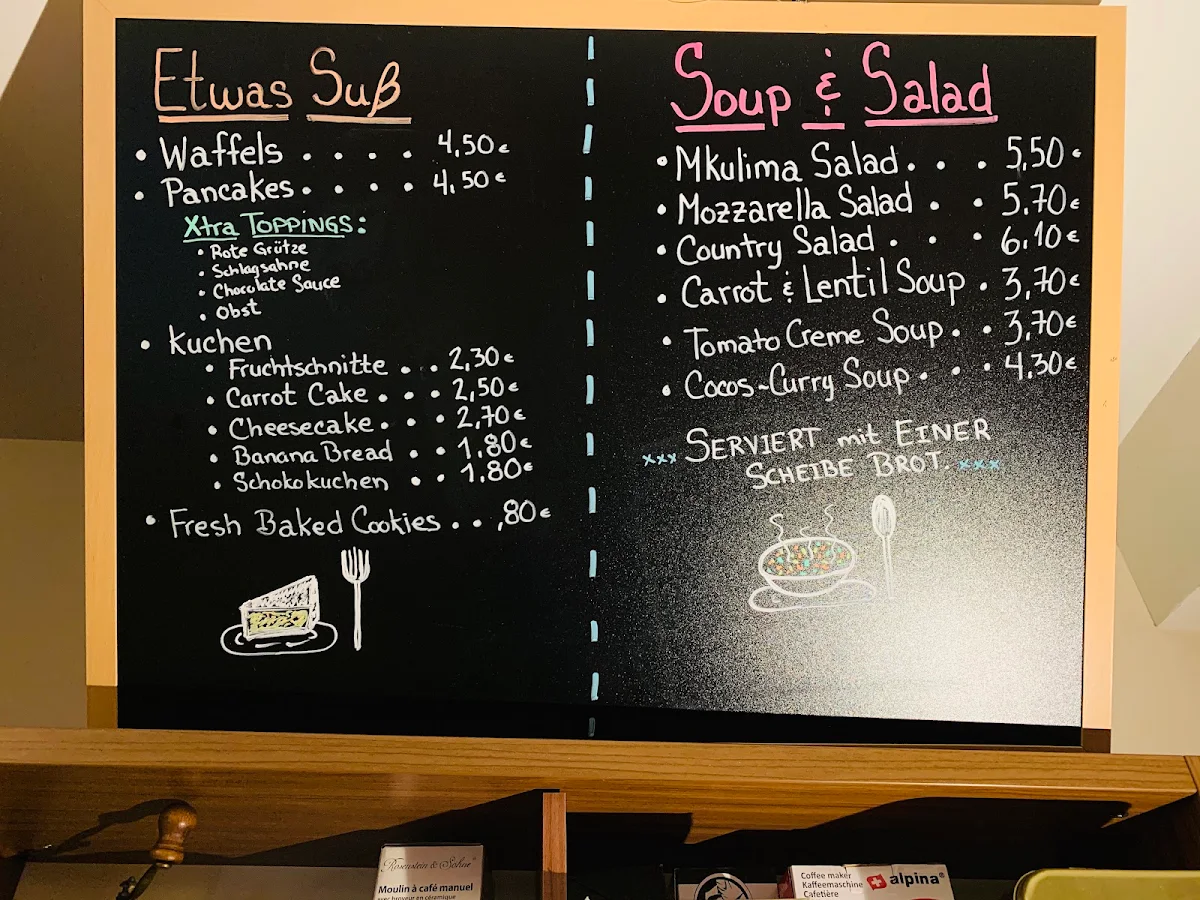 Etwas Suß
• Waffels . . . . 4,50€
• Pancakes . . . . 4,50€
Xtra TOPPINGS:
• Rote Grütze
• Schlagsahne
• Chocolate Sauce
• Obst
• Kuchen
• Fruchtschnitte . . . 2,30€
• Carrot Cake . . . 2,50€
• Cheesecake . . . 2,70€
• Banana Bread . . 1,80€
• Schokokuchen . . 1,80€
• Fresh Baked Cookies . . ,80€
Soup & Salad
• Mkulima Salad . . . 5,50€
• Mozzarella Salad . . 5,70€
• Country Salad . . . 6,10€
• Carrot & Lentil Soup . 3,70€
• Tomato Creme Soup . . 3,70€
• Cocos-Curry Soup . . . 4,30€
xxx SERVIERT mit EINER
SCHEIBE BROT. xxx
Rosenstein & Söhne
Moulin à café manuel
avec broyeur en céramique
Coffee maker
Kaffeemaschine
Cafetière
alpina®